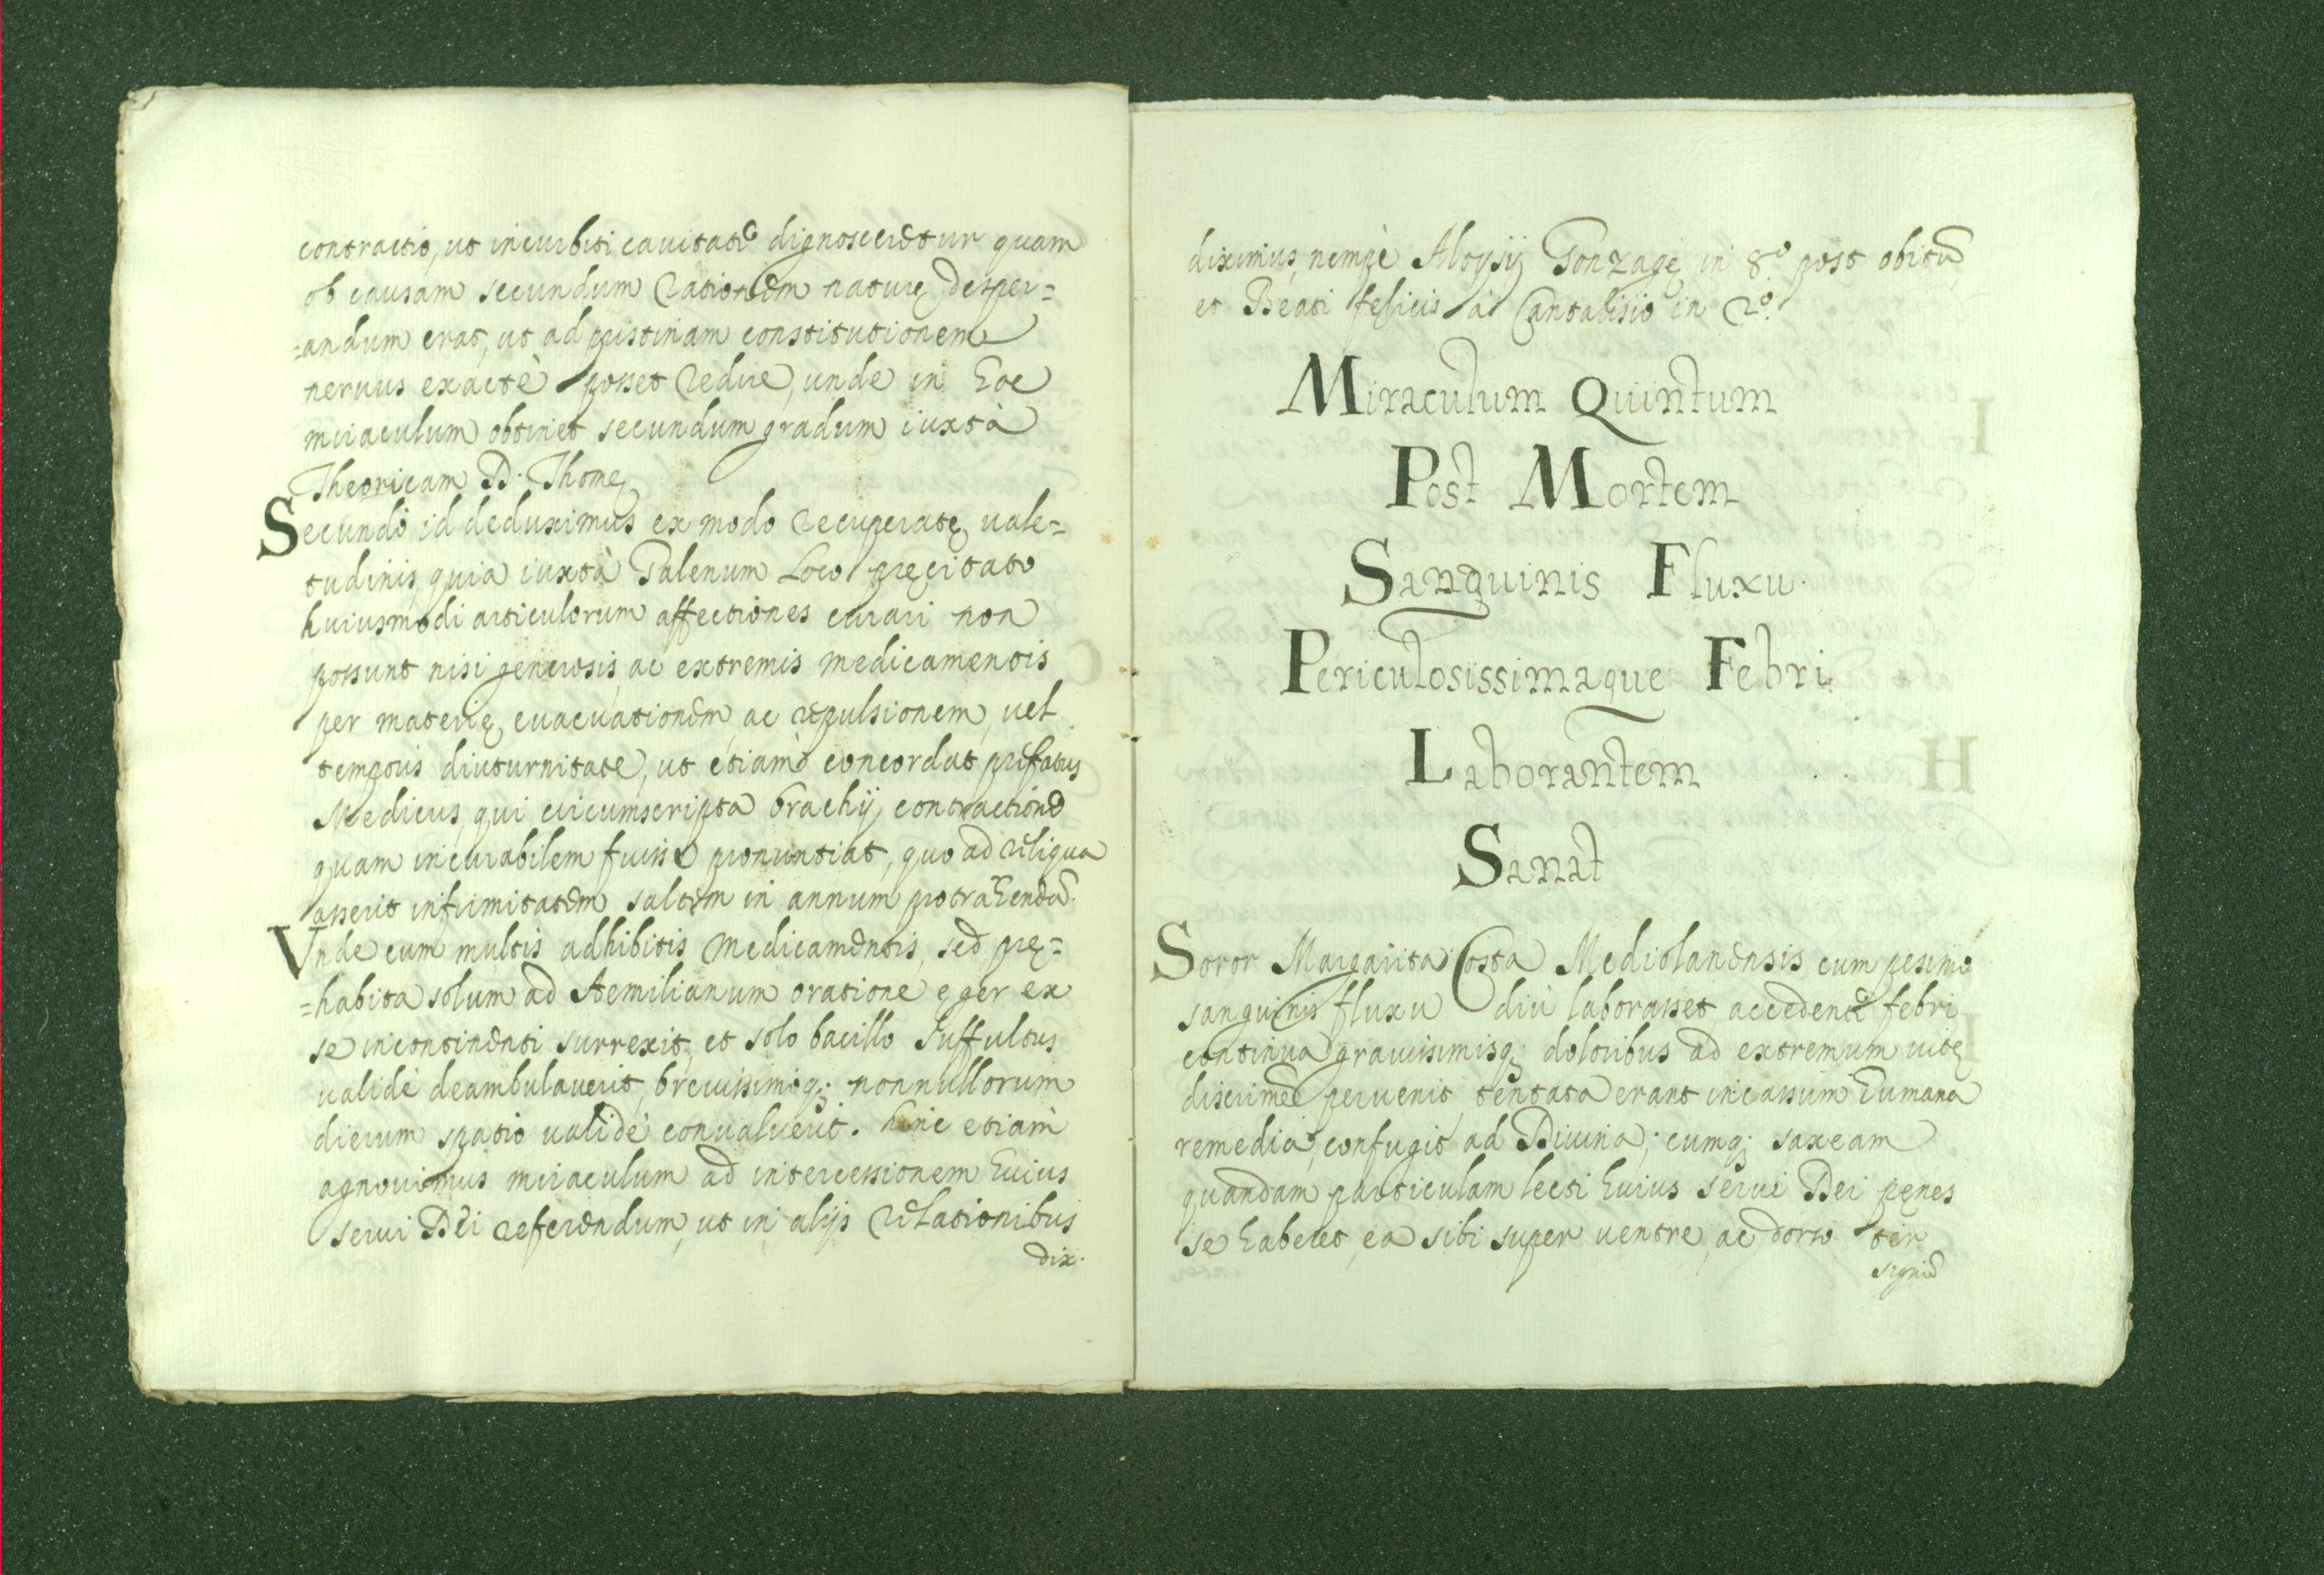 contractio, ut in cubiti cauitate dignosceretur quam
ob causam secundum rationem naturę desper=
=andum erat, ut ad pristinam constitutionem
neruus exactè posset redire, unde in hoc
miraculum obtinet secundum gradum iuxtà
Theoricam D. Thomę
Secundò id deduximus ex modo recuperatę vale=
tudinis, quia iuxtà Galenum Loco pręcitato
huiusmodi articulorum affectiones curari non
possunt nisi generosis, ac extremis medicamentis
per materię euacuationem, ac repulsionem, uel
temporis diuturnitate, ut etiam concordat prefatus
Medicus, qui circumscripta brachij contractione
quam incurabilem fuisse pronuntiat, quo ad reliqua
asserit infirmitatem saltem in annum protrahendã.
Vnde cum multis adhibitis medicamentis, sed prę=
=habita solum ad Aemilianum oratione ęger ex
se incontinenti surrexit, et solo bacillo suffultus
validè deambulauerit, breuissimoq; nonnullorum
dierum spatio validè conualuerit. hinc etiam
agnouimus miraculum ad intercessionem huius
serui Dei referendum, ut in alijs relationibus
dix.
diximus, nempè Aloysij Gonzagę in 8.º post obitũ
et Beati felicis à Cantalisio in 2º.
Miraculum Quintum
Post Mortem
Sanguinis Fluxu
Periculosissimaque Febri
Laborantem
Sanat
Soror Margarita Costa Mediolanensis cum pesimo
sanguinis fluxu diù laborasset, accedente febri
continua grauisimisq; doloribus ad extremum uitę
discrimen peruenit, tentata erant incassum humana
remedia, confugit ad Diuina; cumq; saxeam
quandam particulam lecti huius serui Dei pęnes
se haberet, ea sibi super uentre, ac dorso ter
signũ